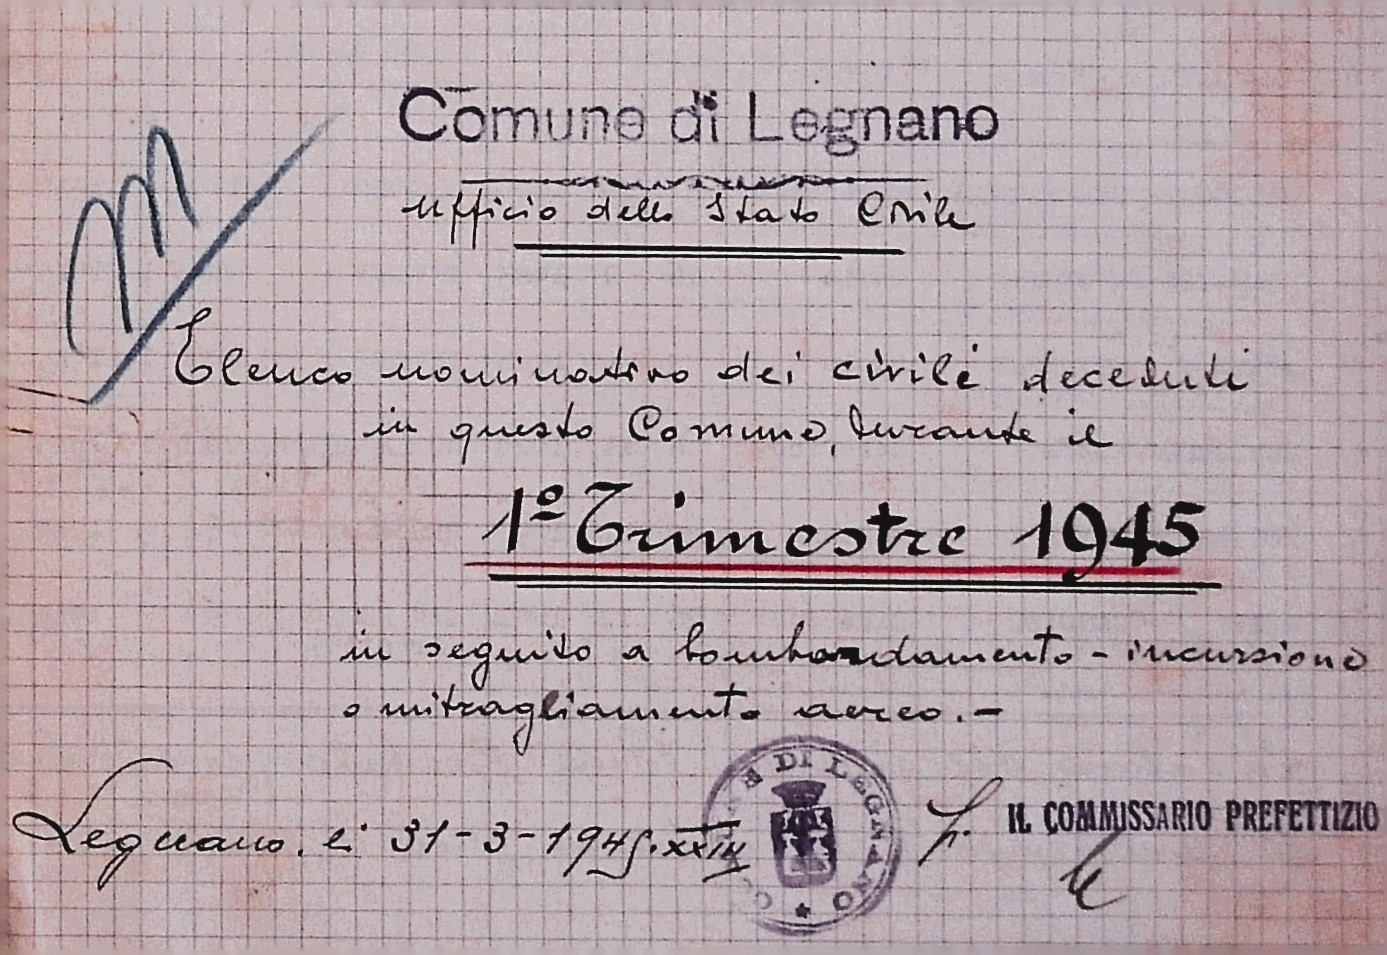 Comune di Legnano
Ufficio dello Stato Civile
Elenco nominativo dei civili deceduti
in questo Comune, durante il
1º Trimestre 1945
in seguito a bombardamento - incursione
o mitragliamento aereo. -
Legnano, li 31-3-1945. XXIII
COMUNE DI LEGNANO
F. IL COMMISSARIO PREFETTIZIO